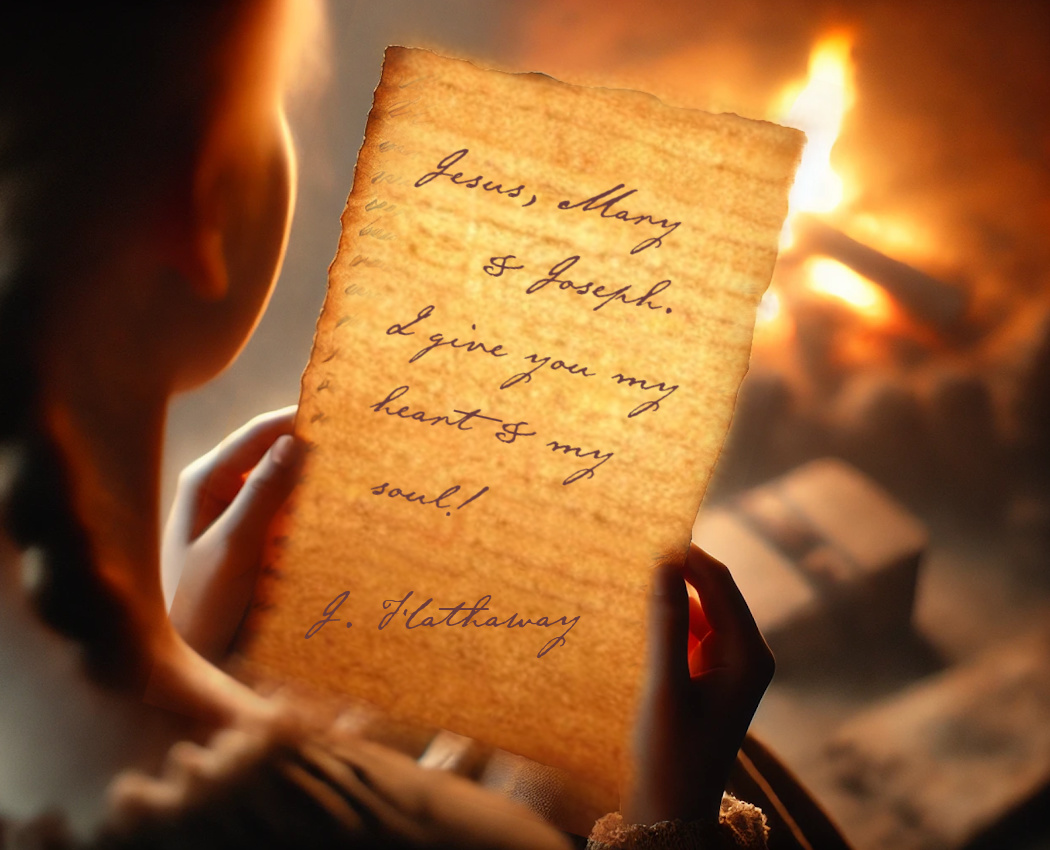 Jesus, Mary
& Joseph.
I give you my
heart & my
soul!
J. Hathaway